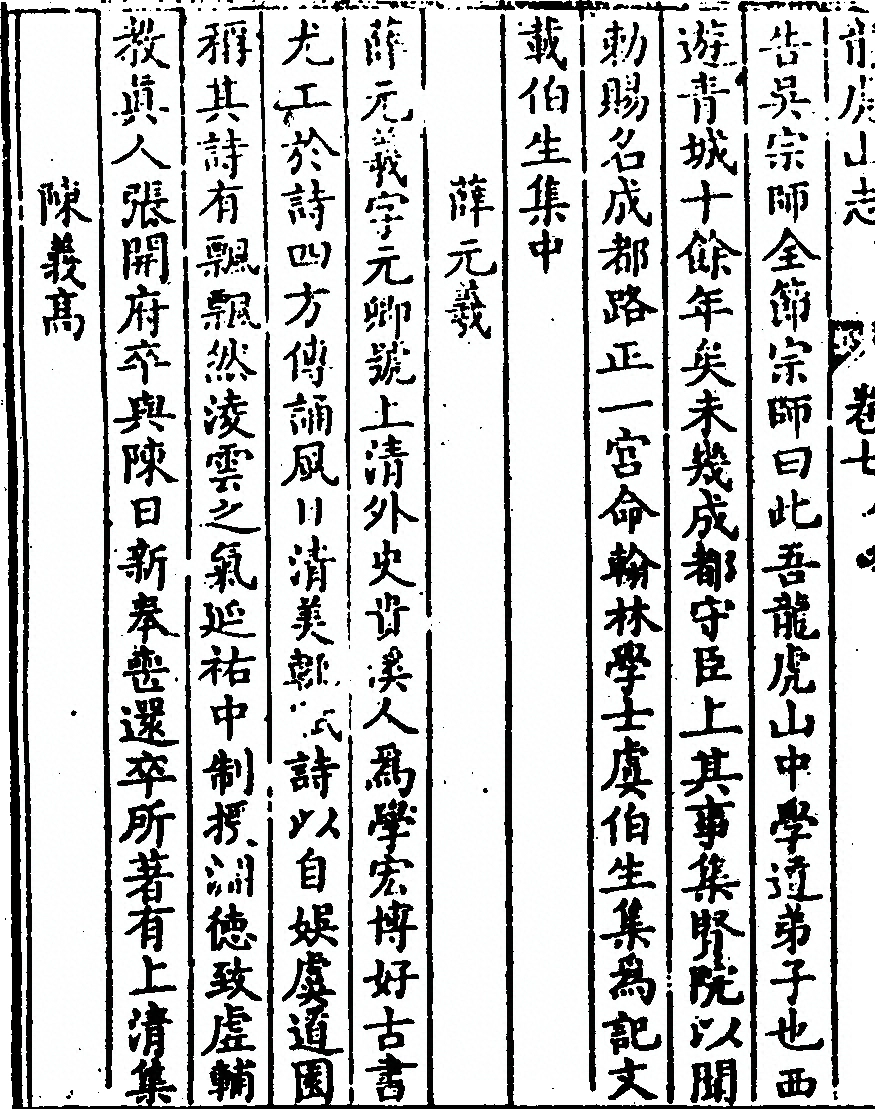 龍虎山志 卷七
告吳宗師全節宗師曰此吾龍虎山中學道弟子也西
遊青城十餘年矣未幾成都守臣上其事集賢院以聞
勅賜名成都路正一宮命翰林學士虞伯生集爲記文
載伯生集中
薛元羲
薛元羲字元卿號上清外史貴溪人爲學宏博好古書
尤工於詩四方傳誦風日清美輒詩以自娛虞道園
稱其詩有飄飄然淩雲之氣延祐中制授德致虛輔
教眞人張開府卒與陳日新奉喪還卒所著有上清集
陳義高